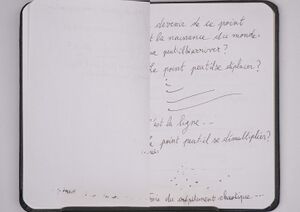 devenir de ce point
et la naissance du monde
peut-il arriver ?
Le point peut-il se déplacer ?
c'est la ligne...
Le point peut-il se démultiplier ?
du crépitement chaotique...